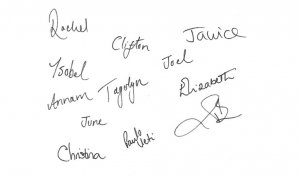 Rachel
Clifton
Janice
Ysobel
Joel
Annam
Tagolyn
Elizabeth
June
Christina
Paulo